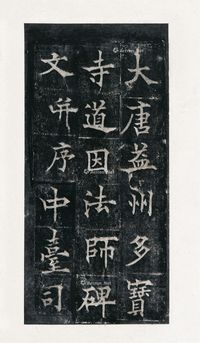 大唐益州多寶
寺道因法師碑
文并序中臺司